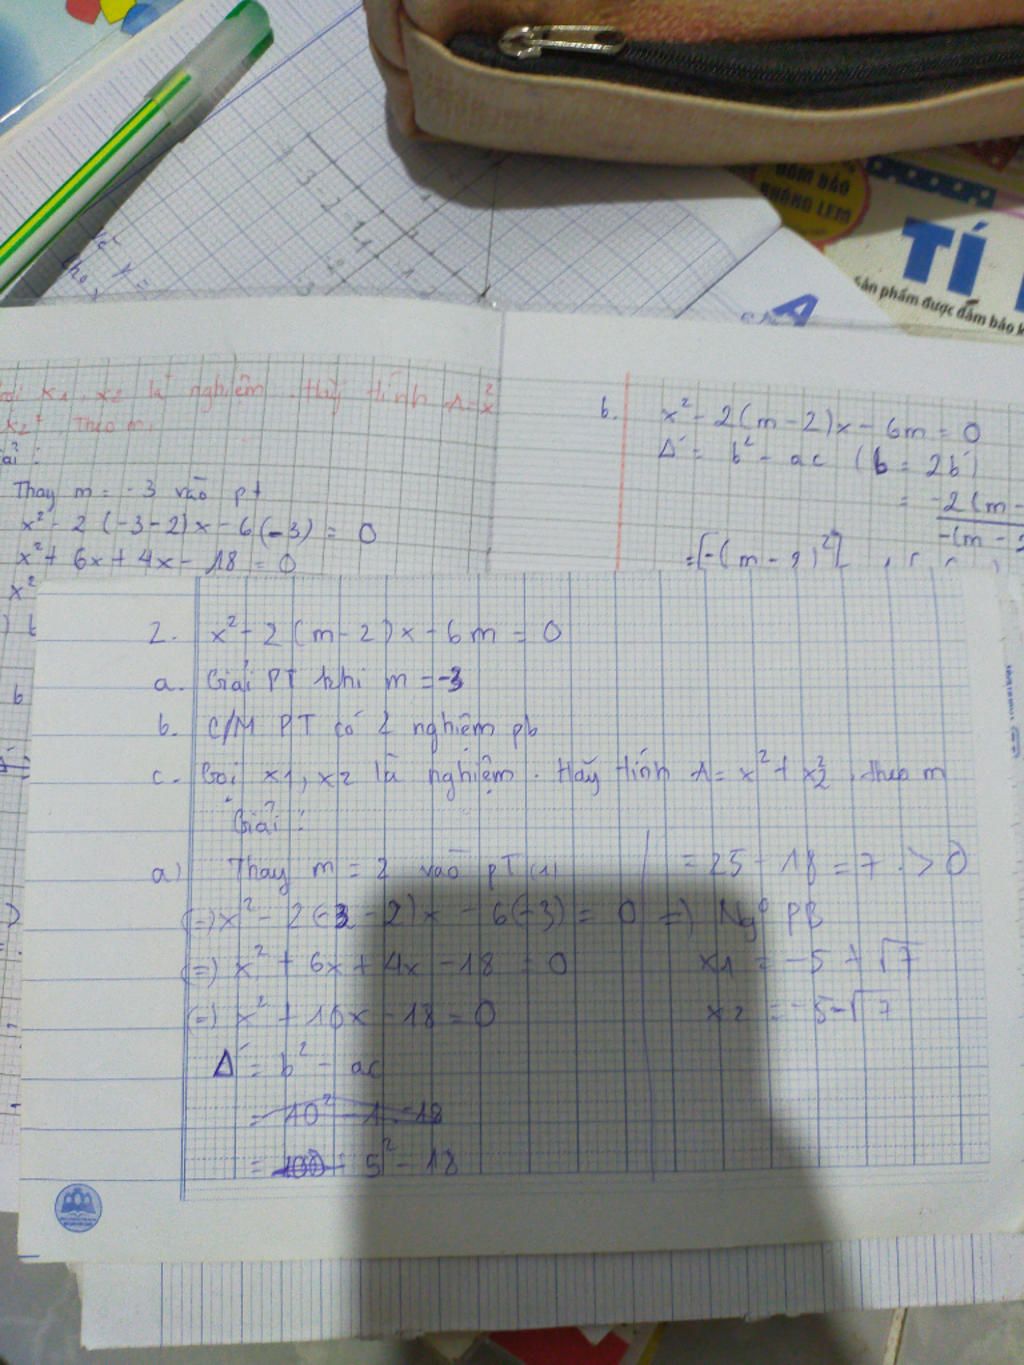 ĐẢM BẢO
KHÔNG LEM
TÍ
Sản phẩm được đảm bảo
x1, x2 là nghiệm. Hãy tính A = x²
x2², Theo m.
Thay m = -3 vào pt
x² - 2 (-3-2)x - 6(-3) = 0
x² + 6x + 4x - 18 = 0
x²
b. x² - 2(m-2)x - 6m = 0
Δ' = b² - ac (b = 2b')
= -2(m-
-(m-2
= [-(m-2)²]
2. x² - 2(m-2)x - 6m = 0
a. Giải PT khi m = -3
b. C/M PT có 2 nghiệm pb
c. Gọi x1, x2 là nghiệm. Hãy tính A = x² + x2², theo m
Giải:
a) Thay m = 2 vào PT (1)
(=) x² - 2(-3-2)x - 6(-3) = 0
(=) x² + 6x + 4x - 18 = 0
(=) x² + 10x - 18 = 0
Δ' = b² - ac
= 10² - 1.-18
= 100 - 5² - 18
= 25 - 18 = 7 > 0
=) Ngº PB
x1 = -5 + √7
x2 = -5 - √7